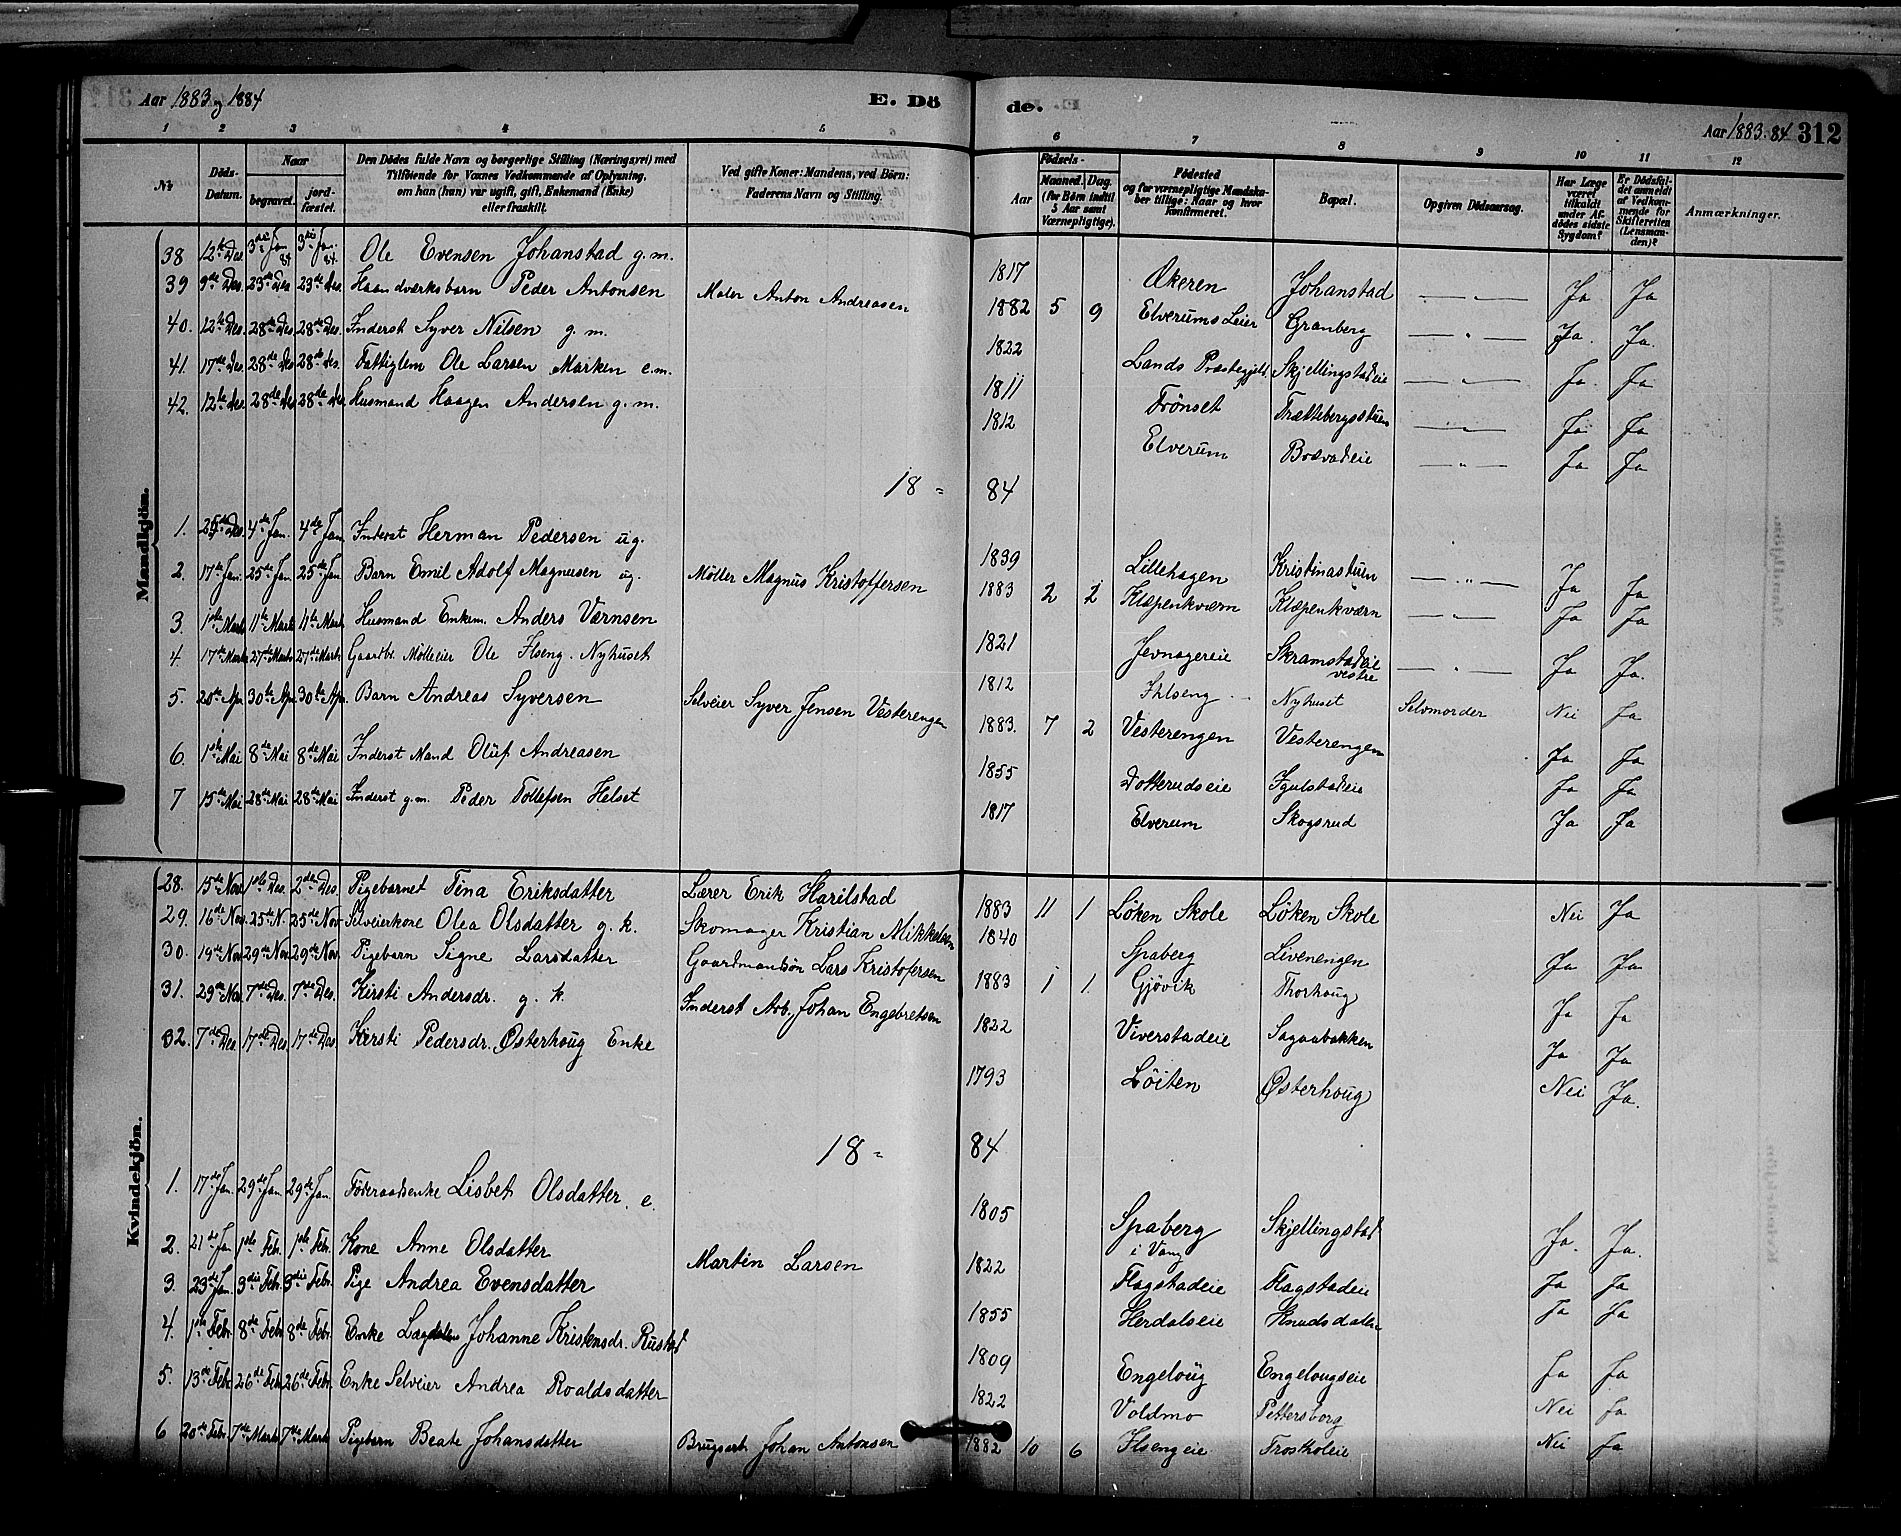 Aar 1883 og 1884 E. Dö de. Aar 1883. 84 312
1 2 3 4 5 6 7 8 9 10 11 12
No Döds-Datum. Naar begravet. jord-fæstet. Den Dödes fulde Navn og borgerlige Stilling (Næringsvei) med Tilföiende for Voxnes Vedkommende af Oplysning, om han (hun) var ugift, gift, Enkemand (Enke) eller fraskilt. Ved gifte Koner: Mandens, ved Börn: Faderens Navn og Stilling. Födsels- Aar Maaned. Dag. (for Börn indtil 5 Aar samt Værnepligtige). Födested og for værnepligtige Mandskaber tillige: Naar og hvor konfirmeret. Bopæl. Opgiven Dödsaarsag. Har Læge været tilkaldt under Afdödes sidste Sygdom? Er Dödsfaldet anmeldt af Vedkommende for Skifteretten (Lensmanden)? Anmærkninger.
Mandkjön.
38 12te Des. 3die Jan 84 3die Jan. 84 Ole Evensen Johanstad g. m. 1817 Økeren Johanstad — " — Ja Ja
39 9de Des. 23de Des 23de Des. Haandverksbarn Peder Antonsen Maler Anton Andreasen 1882 5 9 Elverums Leir Granberg — " — Ja. Ja.
40. 12te Des. 28de Des 28de Des. Inderst Syver Nilsen g. m. 1822 Lands Præstegjeld. Skjellingstadeie — " — Ja. Ja
41. 17de Des. 28de Des 28de Des. Fattiglem Ole Larsen Marken e. m. 1811 Trönset Trættebergsstuen — " — Ja Ja
42. 12te Des. 28de Des 28de Des. Husmand Haagen Andersen g. m. 1812 Elverum Bosvadeie — " — Ja Ja
18 = 84
1. 25de Des. 4de Jan. 4de Jan Inderst Herman Pedersen ug. 1839 Lillehagen Kristinastuen — " — Ja Ja
2. 17de Jan. 25de Jan. 25de Jan Barn Emil Adolf Magnusen ug. Möller Magnus Kristoffersen 1883 2 2 Klæpenkværn Klæpenkværn — " — Ja Ja
3. 1ste Marts 11te Marts 11te Mart. Husmand Enkem. Anders Værnsen 1821 Jevnagereie Skramstadeie vestre — " — Ja Ja.
4. 17de Marts 27de Marts 27de Marts Gaardbr. Mölleeier Ole Ilseng. Nyhuset 1812 Ihlseng Nyhuset Selvmorder Nei Ja
5. 20de Apr. 30te Apr. 30te Apr. Barn Andreas Syversen Selveier Syver Jensen Vesterengen 1883. 7 2 Vesterengen Vesterengen Ja Ja
6. 1ste Mai 8de Mai 8de Mai Inderst Mand Oluf Andreasen 1855 Dotterudseie Igulstadeie Ja Ja
7 15de Mai 28de Mai 28de Mai Inderst g. m. Peder Tollefsen Helset 1817 Elverum Skogsrud Ja Ja
Kvindekjön.
28. 15de Nov. 1ste Des. 2den Des. Pigebarnet Tina Eriksdatter Lærer Erik Harilstad 1883 11 1 Löken Skole Löken Skole Nei Ja
29. 16de Nov. 25de N. 25de Nov Selveierkone Olea Olsdatter g. k. Skomager Kristian Mikkelsen 1840 Spaberg Livenengen Ja Ja
30. 19de Nov. 29de Nov. 29de Nov. Pigebarn Signe Larsdatter Gaardmandsön Lars Kristofersen 1883 1 1 Gjövik Thorhoug Ja Ja
31. 29de Nov. 7de Des. 7de Des. Kirsti Andersdr. g. k. Inderst Arb. Johan Engebretsen 1822 Viverstadeie Sagaabakken Ja Ja
32. 7de Des. 17de Des. 17de Des Kirsti Pedersdr. Østerhoug Enke 1793 Löiten Østerhoug Nei Ja.
18 = 84
1. 17de Jan. 29de Jan 29de Jan. Föderaadsenke Lisbet Olsdatter. e. 1805 Spaberg i Vang Skjellingstad Ja. Ja.
2. 21de Jan 1ste Febr. 1ste Febr. Kone Anne Olsdatter Martin Larsen 1822 Flagstadeie Flagstadeie Ja Ja
3. 23de Jan. 3die Febr. 3die Febr. Pige Andrea Evensdatter 1855 Herdalseie Knudsdalen Ja Ja
4. 1ste Febr. 8de Febr 8de Febr. Enke Johanne Kristensdr. Rustad 1809 Engeloug Engelougseie Ja Ja
5. 13de Febr. 26de Febr. 26de Febr. Enke Selveier Andrea Roaldsdatter 1822 Voldmo Pettersborg Nei Ja
6 20de Febr. 7de Marts 7de Marts Pigebarn Beate Johansdatter Brugsarb. Johan Antonsen 1882 10 6 Ilsengeie Froskoleie Nei Ja